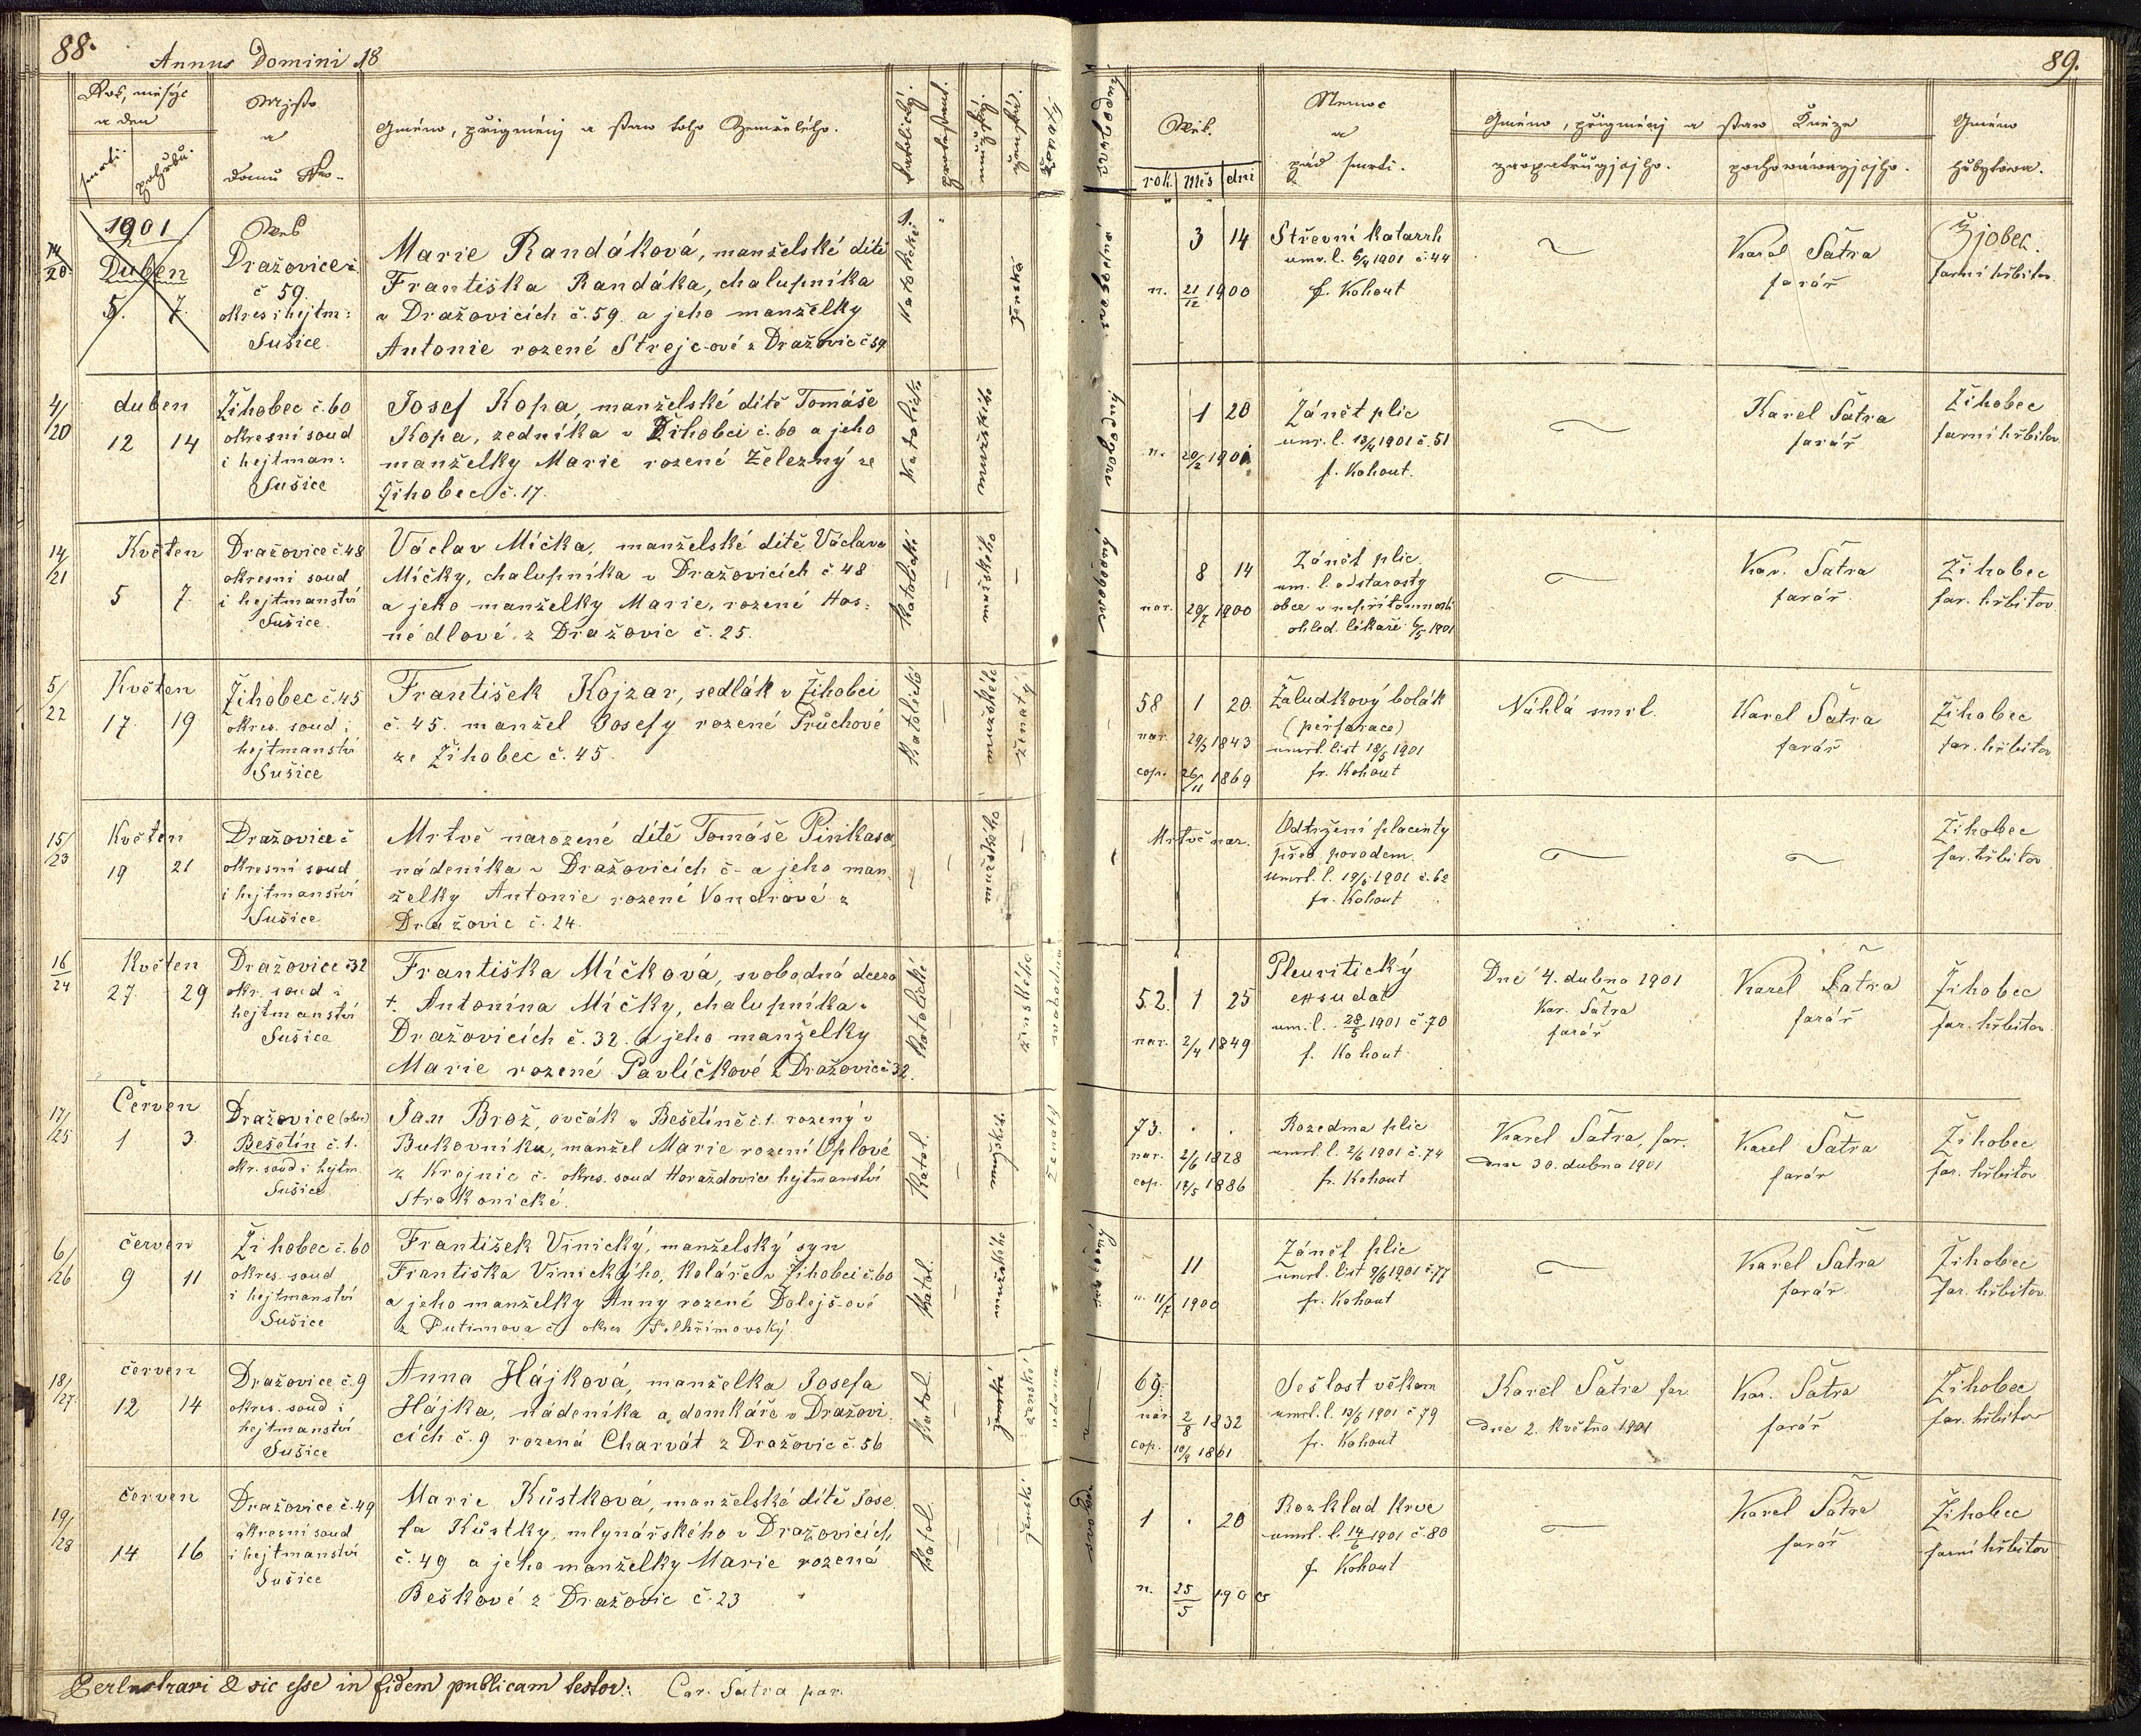 88.
Annus Domini 18
Rok, měsýc
a den
smrti.
pohřbu.
Mjsto
a
domu Nro-
Gméno, přigménj a staw toho Zemřelého.
katolický.
protestant.
mužský.
ženský.
1901
Duben
5. 7.
Wes
Dražovice
č 59.
okres i hejtm:
Sušice.
Marie Randáková, manželské dítě
Františka Randáka, chalupníka
v Dražovicích č. 59. a jeho manželky
Antonie rozené Strejc-ové z Dražovic č 59
katolické
ženské
4/20
duben
12 14
Žihobec č. 60
okresní soud
i hejtman:
Sušice
Josef Kopa, manželské dítě Tomáše
Kopa, zedníka v Žihobci č. 60 a jeho
manželky Marie rozené Železný ze
Žihobec č. 17.
katolické
mužského
14/21
Květen
5 7.
Dražovice č 48
okresní soud
i hejtmanství
Sušice.
Václav Míčka, manželské dítě Václava
Míčky, chalupníka v Dražovicích č 48
a jeho manželky Marie, rozené Hos-
nédlové z Dražovic č. 25.
katolické
mužského
5/22
Květen
17 19
Žihobec č. 45
okres. soud i
hejtmanství
Sušice
František Kojzar, sedlák v Žihobci
č. 45. manžel Josefy rozené Průchové
ze Žihobec č. 45.
katolické
mužského
ženatý
15/23
Květen
19 21
Dražovice č
okresní soud
i hejtmanství
Sušice
Mrtvě narozené dítě Tomáše Pinkasa
nádeníka v Dražovicích č - a jeho man-
želky Antonie rozené Vondrové z
Dražovic č. 24.
mužského
16/24
Květen
27. 29
Dražovice č 32
okr. soud i
hejtmanství
Sušice
Františka Míčková, svobodná dcera
†. Antonína Míčky, chalupníka v
Dražovicích č. 32. a jeho manželky
Marie rozené Pavlíčkové z Dražovic č 32.
katolické
ženského
svobodná
17/25
Červen
1 3.
Dražovice (obec)
Bešetín č. 1.
okr. soud i hejtm.
Sušice
Jan Brož, ovčák v Bešetíně č 1. rozený v
Bukovníku, manžel Marie rození Oplové
z Krojnic č. okres. soud Horažďovice hejtmanství
Strakonické.
katol.
mužského
ženatý
6/26
červen
9 11
Žihobec č. 60
okres. soud
i hejtmanství
Sušice
František Vinický, manželský syn
Františka Vinického, koláře v Žihobci č. 60
a jeho manželky Anny rozené Dolejš-ové
z Putimova č okres Pelhřimovský
katol.
mužského
18/27
červen
12 14
Dražovice č. 9
okres. soud i
hejtmanství
Sušice
Anna Hájková, manželka Josefa
Hájka, nádeníka a domkáře v Dražovi-
cích č. 9 rozená Charvát z Dražovic č. 56
katol.
ženské
vdaná
19/28
červen
14 16
Dražovice č. 49
okresní soud
i hejtmanství
Sušice
Marie Kůstková, manželské dítě Jose-
fa Kůstky, mlynářského v Dražovicích
č. 49 a jeho manželky Marie rozená
Bešková z Dražovic č. 23
katol.
ženské
Perlustravi & sic esse in fidem publicam testor: Car. Šatra par.
89.
Wěk.
rok. Měs dni
Nemoc
a
pád smrti.
Gméno, přigménj a staw Kněze
zaopatřugjcjho.
pochowáwagjcjho.
Gméno
hřbytowa.
3 14
n. 21/12 1900
Střevní katarrh
umr. l. 6/4 1901 č. 44
f. Kohout
Karel Šatra
farář
Žjobec.
farní hřbitov
1 20
n. 20/2 1901
Zánět plic
umr. l. 13/4 1901 č. 51
f. Kohout.
Karel Šatra
farář
Žihobec
farní hřbitov
8 14
nar. 20/7 1900
Zánět plic,
um. l. od starosty
obce v nepřítomnosti
ohled. lékaře 6/5 1901
Kar. Šatra
farář.
Žihobec
far. hřbitov
58 1 20.
nar. 29/3 1843
cop. 26/11 1869
Žaludkový bolák
(perforace)
umrl. list 18/5 1901
fr. Kohout
Náhlá smrt.
Karel Šatra
farář
Žihobec
far. hřbitov
Mrtvě nar.
Odtržení placenty
před porodem.
umrl. l. 19/5 1901 č. 62
fr. Kohout
Žihobec
far. hřbitov
52. 1 25
nar. 2/4 1849
Pleuritický
exsudat
um. l. 28/5 1901 č 70
f. Kohout
Dne 4. dubna 1901
Kar. Šatra
farář
Karel Šatra
farář
Žihobec
far. hřbitov
73. . .
nar. 2/6 1828
cop. 18/5 1886
Rozedma plic
umrl. l. 2/6 1901 č. 74
fr. Kohout
Karel Šatra, far.
dne 30. dubna 1901
Karel Šatra
farář
Žihobec
far. hřbitov
11
n. 11/7 1900
Zánět plic
umrl. list 9/6 1901 č. 77
fr. Kohout
Karel Šatra
farář
Žihobec
far. hřbitov
69.
nar 2/8 1832
cop. 10/9 1861
Sešlost věkem
umrl. l. 13/6 1901 č 79
fr. Kohout
Karel Šatra far.
dne 2. Května 1901
Kar. Šatra
farář
Žihobec
far. hřbitov
1 . 20
n. 25/5 1900
Rozklad krve
umrl. l. 14/6 1901 č. 80
f Kohout
Karel Šatra
farář
Žihobec
farní hřbitov